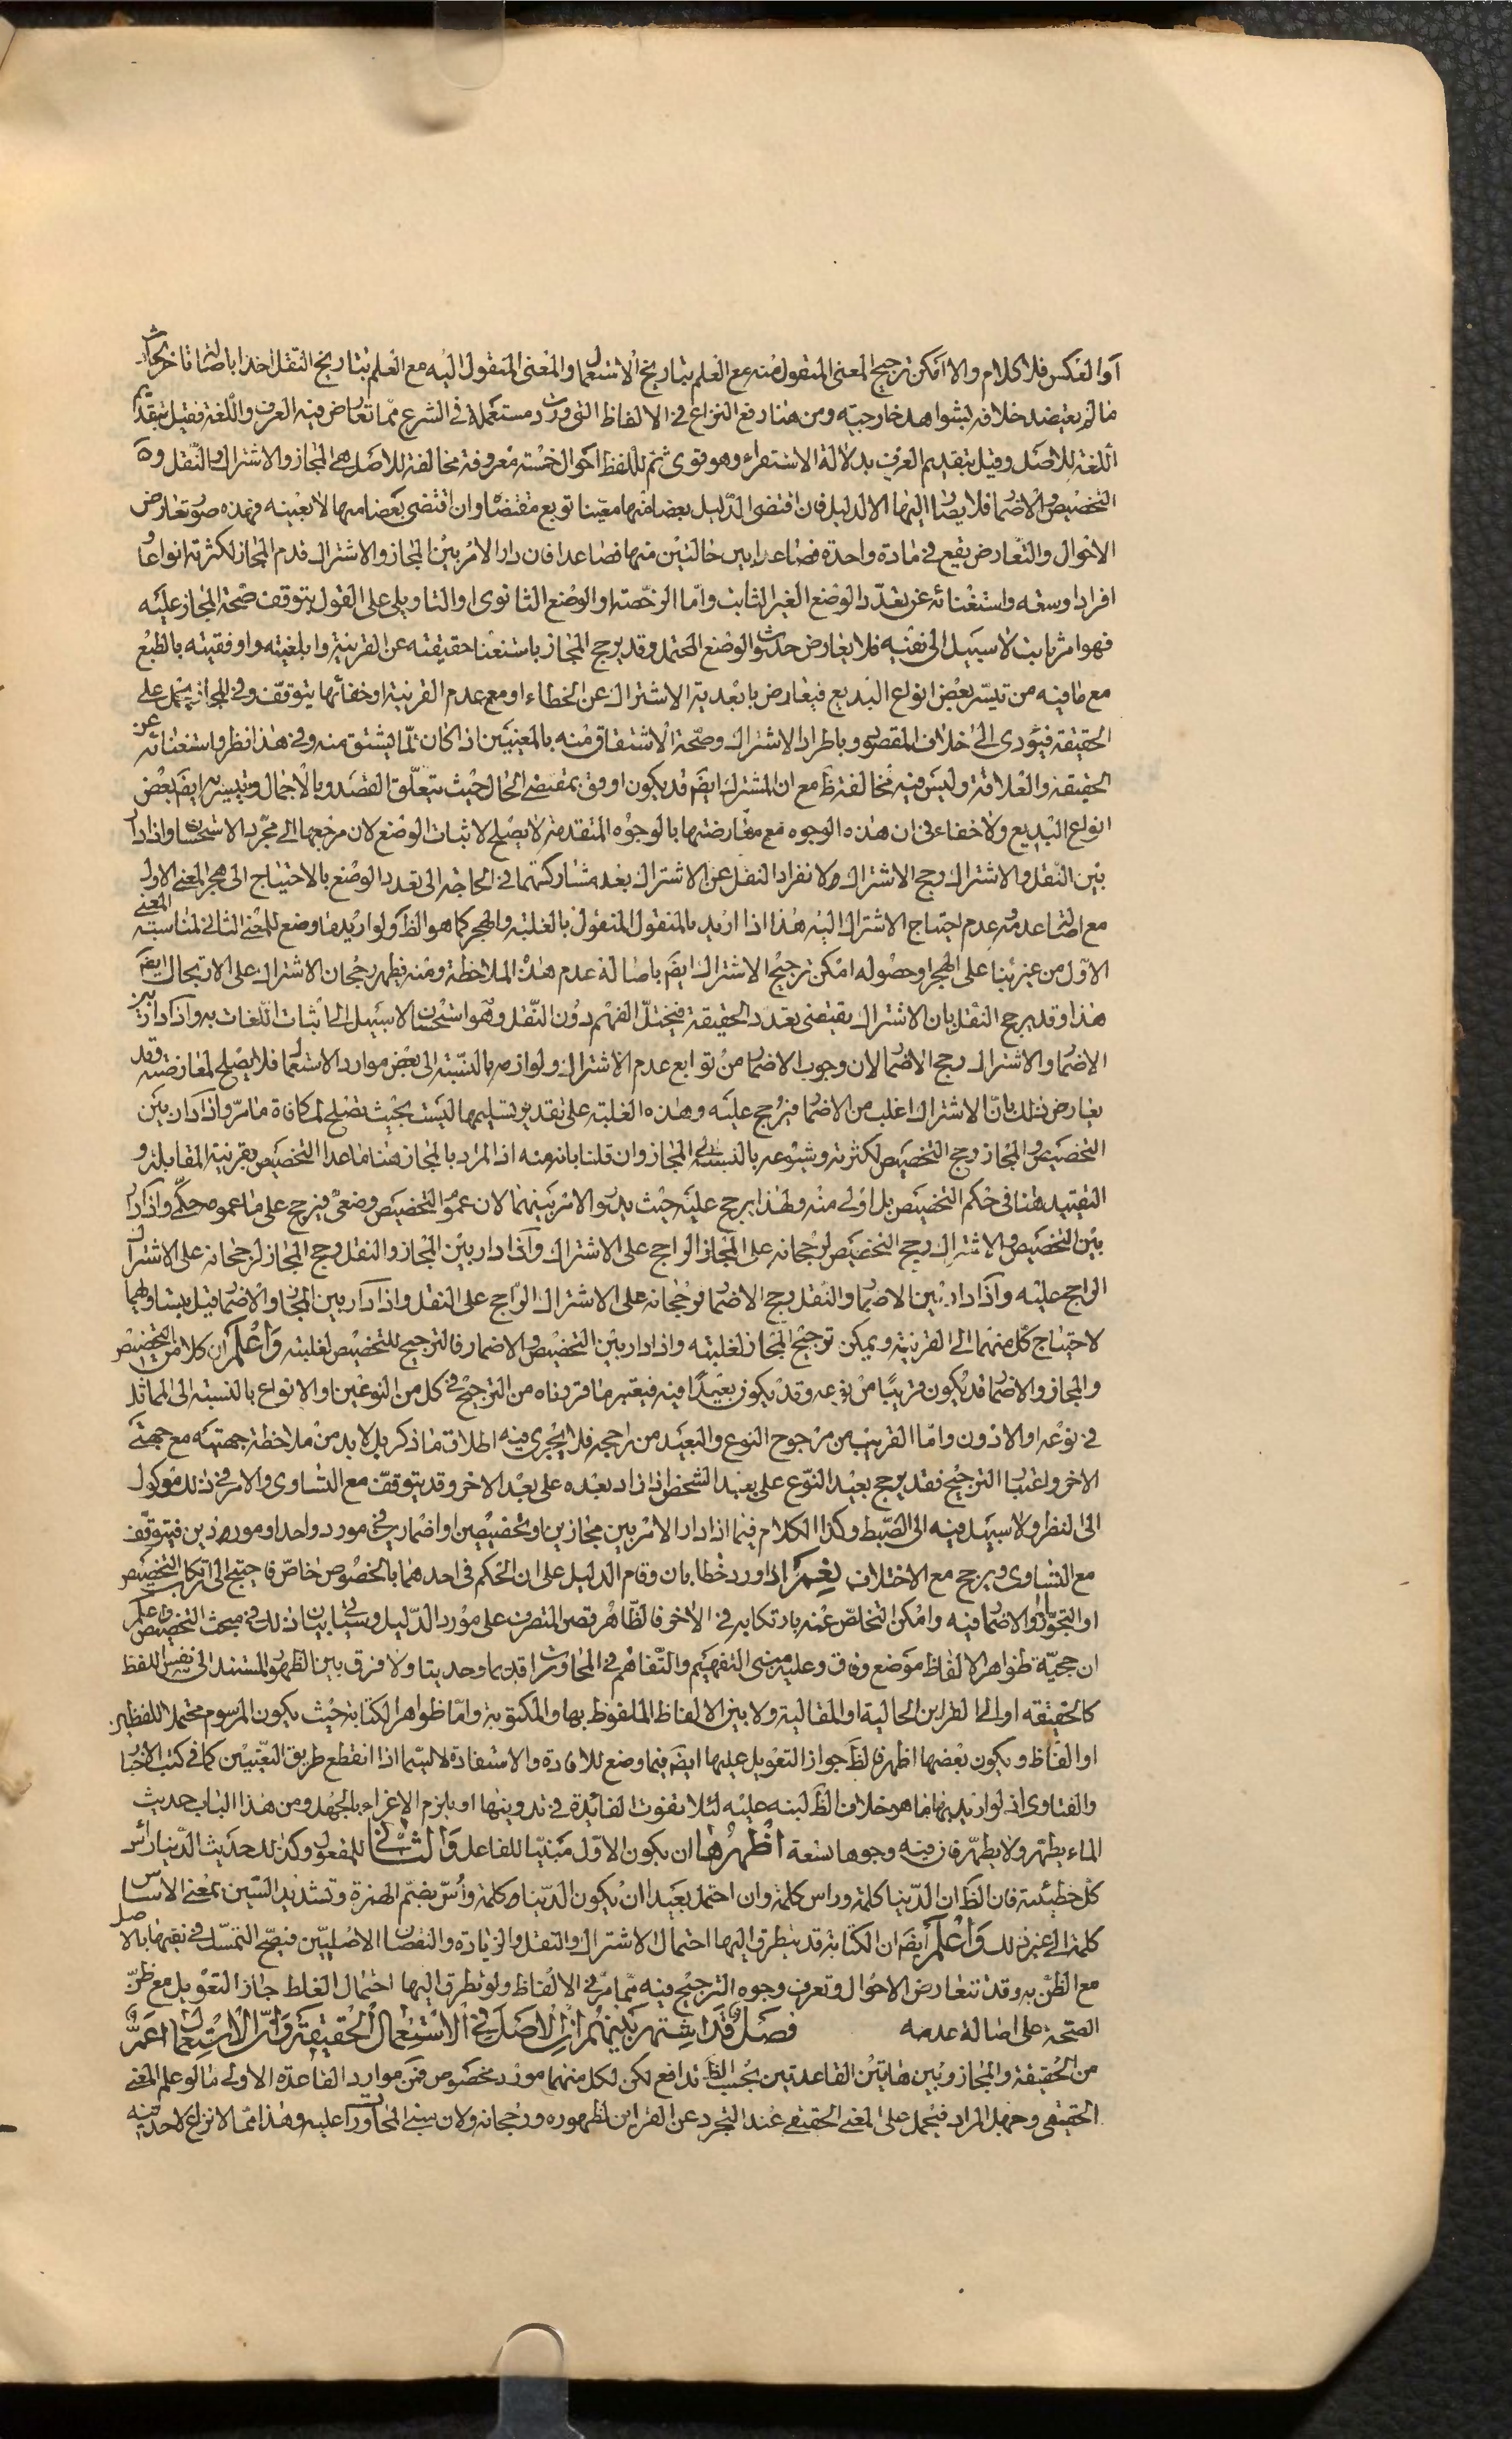 او العكس فلا كلام والا امكن ترجيح المعنى المنقول منه مع العلم بتاريخ الاستعمال والمعنى المنقول اليه مع العلم بتاريخ النقل اخذا باصالة تاخر الحادث
ما لم يعتضد خلافه بشواهد خارجية ومن هنا رفع النزاع في الالفاظ التى وردت مستعملة في الشرع مما تعارض فيه العرف واللغة فقيل بتقديم
اللغة للاصل وقيل بتقديم العرف بدلالة الاستقراء وهو قوى ثم للفظ احوال خمسة معروفة مخالفة للاصل هى المجاز والاشتراك والنقل و
التخصيص والاضمار فلا يصار اليها الا لدليل فان اقتضى الدليل بعضا منها معينا توبع مقتضاه وان اقتضى بعضا منها لا بعينه فهذه صور تعارض
الاحوال والتعارض يقع في مادة واحدة فصاعدا بين حالتين منها فصاعدا فان دار الامر بين المجاز والاشتراك قدم المجاز لكثرته انواعا و
افرادا وسعة واستغنائه عن تعدد الوضع الغير الثابت واما الرخصة او الوضع الثانوى او التاويلى على القول بتوقف صحة المجاز عليه
فهو امر ثابت لا سبيل الى نفيه فلا يعارض حدوث الوضع المحتمل وقد يرجح المجاز باستغناء حقيقته عن القرينة وابلغيته واوفقيته بالطبع
مع ما فيه من تيسر بعض انواع البديع فيعارض بابعدية الاشتراك عن الخطاء او مع عدم القرينة او خفائها يتوقف وفي المجاز يحمل على
الحقيقة فيؤدى الى خلاف المقصود وباطراد الاشتراك وصحة الاشتقاق منه بالمعنيين اذا كان مما يشتق منه وفي هذا نظر واستغنائه عن
الحقيقة والعلاقة وليس فيه مخالفة ظ مع ان المشترك ايضم قد يكون اوفق بمقتضى الحال حيث يتعلق القصد بالاجمال وتيسير ايضم بعض
انواع البديع ولا خفاء في ان هذه الوجوه مع معارضتها بالوجوه المتقدمة لا يصلح لاثبات الوضع لان مرجعها الى مجرد الاستحسان واذا دار
بين النقل والاشتراك رجح الاشتراك ولانفراد النقل عن الاشتراك بعد مشاركتهما في الحاجة الى تعدد الوضع بالاحتياج الى هجر المعنى الاول
مع اصالة عدمه وعدم احتياج الاشتراك اليه هذا اذا اريد بالمنقول المنقول بالغلبة والهجر كما هو الظ ولو اريد ما وضع للمعنى الثاني لمناسبة المعنى
الاول من غير بناء على الهجر وحصوله امكن ترجيح الاشتراك ايضم باصالة عدم هذه الملاحظة ومنه يظهر رجحان الاشتراك على الارتجال ايضم
هذا وقد يرجح النقل بان الاشتراك يقتضى تعدد الحقيقة فيختل الفهم دون النقل وهو استحسان لا سبيل الى اثبات اللغات به واذا دار بين
الاضمار والاشتراك رجح الاضمار لان وجوب الاضمار من توابع عدم الاشتراك ولوازمه بالنسبة الى بعض موارد الاستعمال فلا يصلح لمعارضته وقد
يعارض ذلك بان الاشتراك اغلب من الاضمار فيرجح عليه وهذه الغلبة على تقدير تسليمها ليست بحيث تصلح لمكافاة ما مر واذا دار بين
التخصيص والمجاز رجح التخصيص لكثرته وشيوعه بالنسبة الى المجاز وان قلنا بانه منه اذ المراد بالمجاز هنا ما عدا التخصيص بقرينة المقابلة و
التقييد هنا في حكم التخصيص بل اولى منه ولهذا يرجح عليه حيث يدور الامر بينهما لان عموم التخصيص وضعى فيرجح على ما عمومه حكمى واذا دار
بين التخصيص والاشتراك رجح التخصيص لرجحانه على المجاز الراجح على الاشتراك واذا دار بين المجاز والنقل رجح المجاز لرجحانه على الاشتراك
الراجح عليه واذا دار بين الاضمار والنقل رجح الاضمار لرجحانه على الاشتراك الراجح على النقل واذا دار بين المجاز والاضمار قيل بتساويهما
لاحتياج كل منهما الى القرينة ويمكن ترجيح المجاز لغلبته واذا دار بين التخصيص والاضمار فالترجيح للتخصيص لغلبته واعلم ان كلا من التخصيص
والمجاز والاضمار قد يكون قريبا من نوعه وقد يكون بعيدا فيه فيعتبر ما قررناه من الترجيح في كل من النوعين او الانواع بالنسبة الى المماثل
في نوعه او الادون واما القريب من مرجوح النوع والبعيد من راجحه فلا يجرى فيه اطلاق ما ذكر بل لا بد من ملاحظة جهتيه مع جهتى
الاخر واعتبار الترجيح فقد يرجح بعيد النوع على بعيد الشخص اذا زاد بعده على بعد الاخر وقد يتوقف مع التساوى والامر في ذلك موكول
الى النظر ولا سبيل فيه الى الضبط وكذا الكلام فيما اذا دار الامر بين مجازين او تخصيصين او اضمارين في مورد واحد او موردين فيتوقف
مع التساوى ويرجح مع الاختلاف نعم اذا ورد خطابان وقام الدليل على ان الحكم في احدهما بالخصوص خاص فاحتيج الى ارتكاب التخصيص
او التجوز او الاضمار فيه وامكن التخلص عنه بارتكابه في الاخر فالظاهر قصر التصرف على مورد الدليل وسياتى بيان ذلك في مبحث التخصيص واعلم
ان حجية ظواهر الالفاظ موضع وفاق وعليه مبنى التفهيم والتفاهم في المحاورات قديما وحديثا ولا فرق بين الظهور المستند الى نفس اللفظ
كالحقيقة او الى القراين الحالية او المقالية ولا بين الالفاظ الملفوظ بها والمكتوبة واما ظواهر الكتابة حيث يكون المرسوم محتملا للفظين
او الفاظ ويكون بعضها اظهر فالظ جواز التعويل عليها ايضم فيما وضع للافادة والاستفادة لا سيما اذا انقطع طريق التعيين كما في كتب الاخبار
والفتاوى اذ لو اريد بها ما هو خلاف الظ لنبه عليه لئلا يفوت الفائدة في تدوينها او يلزم الاغراء بالجهل ومن هذا الباب حديث
الماء يطهر ولا يطهر فان فيه وجوها تسعة اظهرها ان يكون الاول مبنيا للفاعل والثاني للمفعول وكذلك حديث الدنيا راس
كل خطيئة فان الظ ان الدنيا كلمة وراس كلمة وان احتمل بعيدا ان يكون الدينار كلمة واس بضم الهمزة وتشديد السين بمعنى الاساس
كلمة الى غير ذلك واعلم ايضم ان الكتابة قد يتطرق اليها احتمال الاشتراك والنقل والزيادة والنقصان الاصليين فيصح التمسك في نفيها بالاصل
مع الظن به وقد تتعارض الاحوال وتعرف وجوه الترجيح فيه مما مر في الالفاظ ولو تطرق اليها احتمال الغلط جاز التعويل مع ظن
الصحة على اصالة عدمه فصل قد اشتهر بينهم ان الاصل في الاستعمال الحقيقة وان الاستعمال اعم
من الحقيقة والمجاز وبين هاتين القاعدتين بحسب الظ تدافع لكن لكل منهما مورد مخصوص فمن موارد القاعدة الاولى ما لو علم المعنى
الحقيقى وجهل المراد فيحمل على المعنى الحقيقى عند التجرد عن القراين لظهوره ورجحانه ولان مبنى المحاورات عليه وهذا مما لا نزاع لاحد فيه